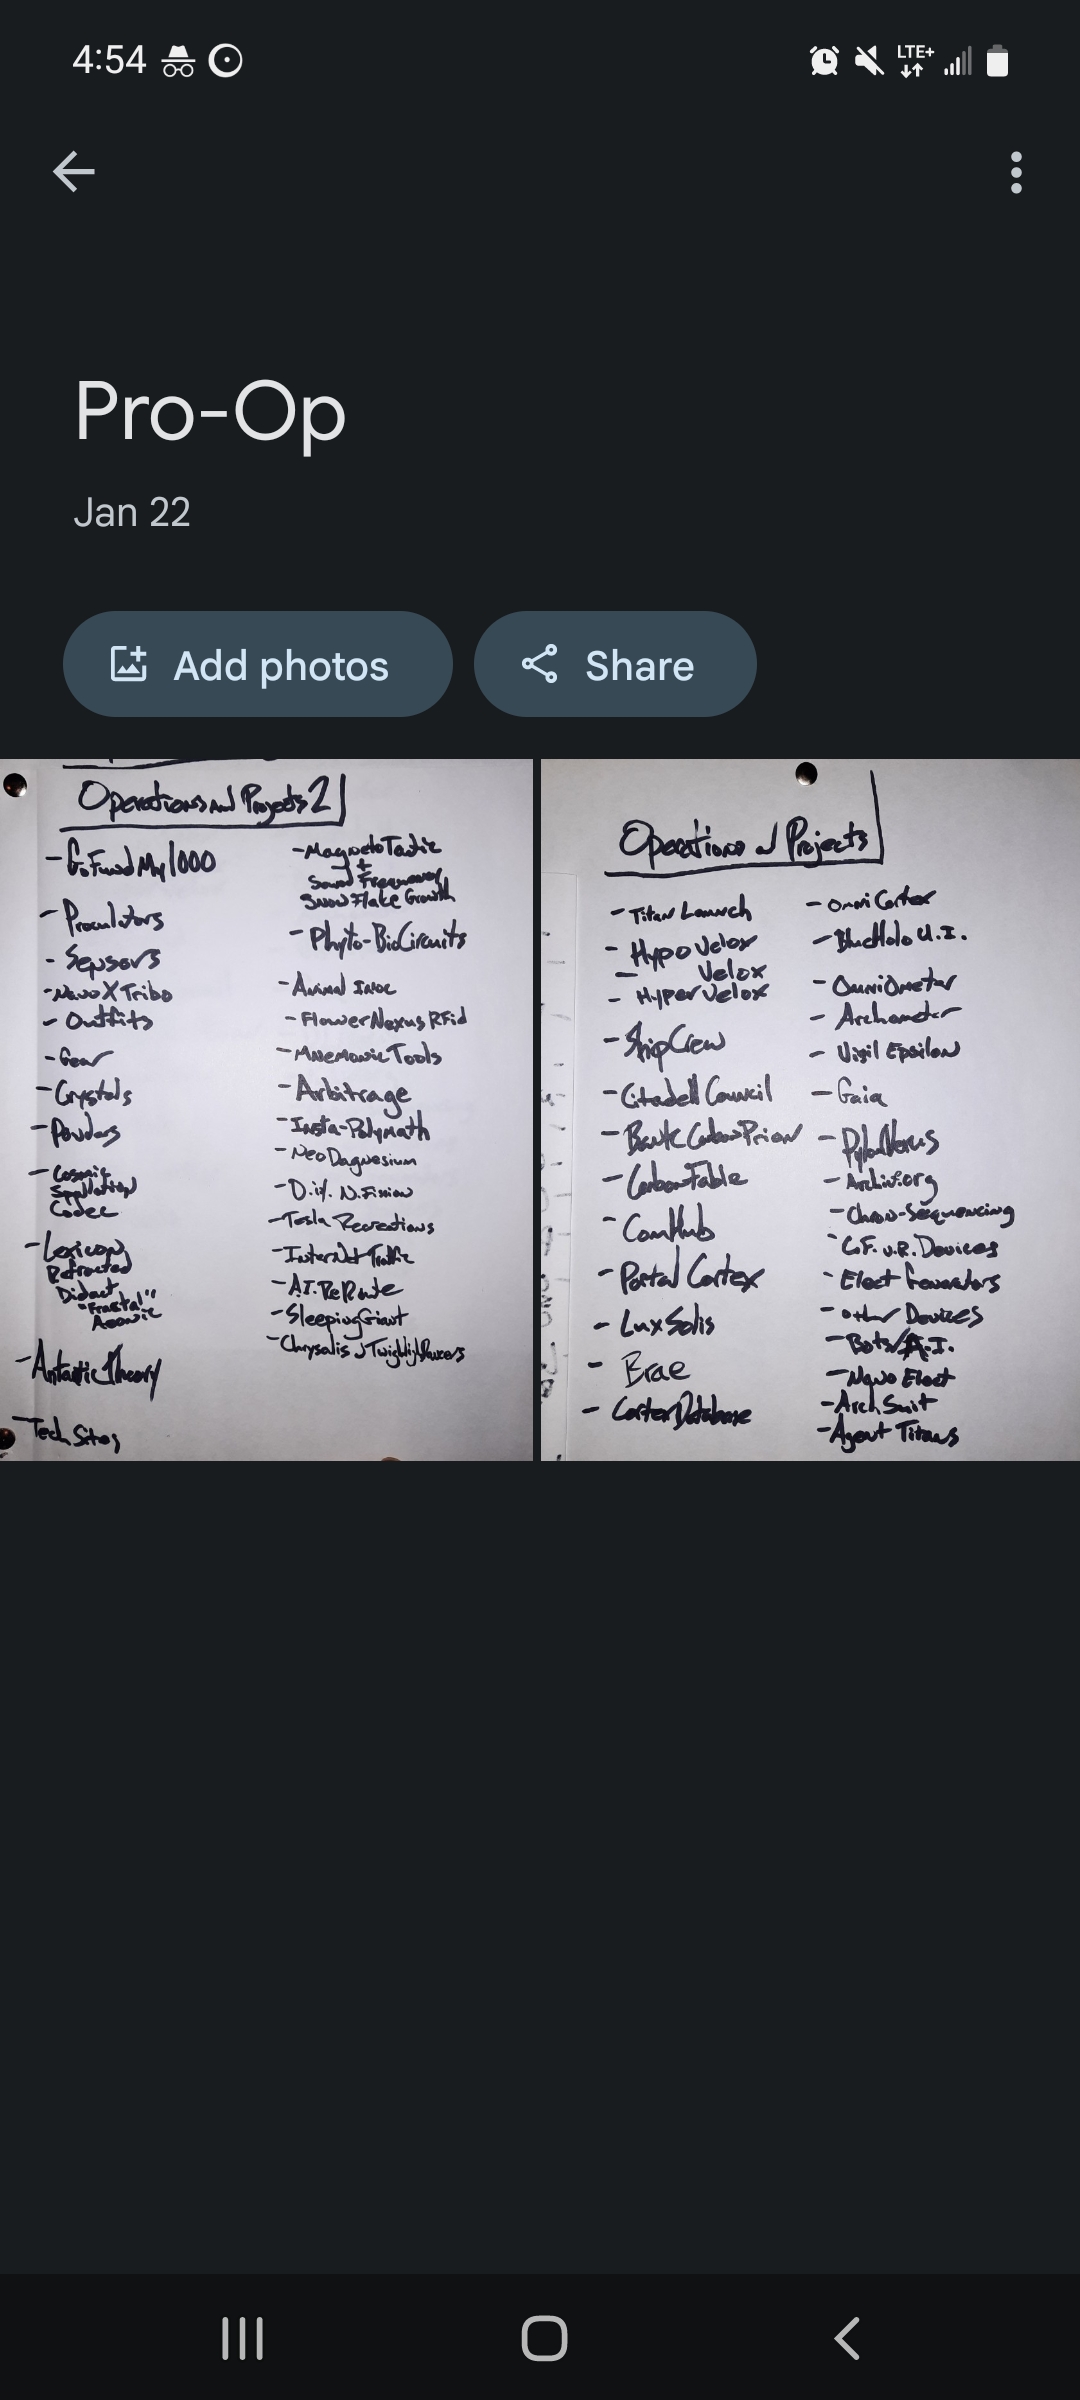 4:54
LTE+
Pro-Op
Jan 22
Add photos
Share
Operations and Projects 2
- GoFundMy1000
- Proculators
- Sensors
- Nano X Tribo
- Outfits
- Gear
- Crystals
- Powders
- Cosmic
Spallation
Codec
- Lexicon
Refracted
Didact
"Fractal"
Aeonic
- Theory
- Tech Sites
- MagnetoTactic
+
Sound Frequency
SnowFlake Growth
- Phyto-BioCircuits
- Animal
- FlowerNexus RFid
- Mnemonic Tools
- Arbitrage
- Insta-Polymath
- NeoDagnesium
- N.Fission
- Tesla Recreations
- InterNet Traffic
- A.I. ReRoute
- SleepingGiant
- Chrysalis
Operations and Projects
- Titan Launch
- Hypo Velox
- Velox
- HyperVelox
- ShipCrew
- Citadell Council
- Bank CarbonPrion
- CarbonFable
- ComHub
- Portal Cortex
- LuxSolis
- Brae
- CortexDatabase
- Omni Cortex
- BlueHolo U.I.
- OmniOmeter
- Archometer
- Vigil Epsilon
- Gaia
- PylonNexus
- Archiv.org
- Chrono-Sequencing
- C.F. V.R. Devices
- Elect Generators
- other Devices
- Bots/A.I.
- Nano Elect
- Arch Suit
- Agent Titans